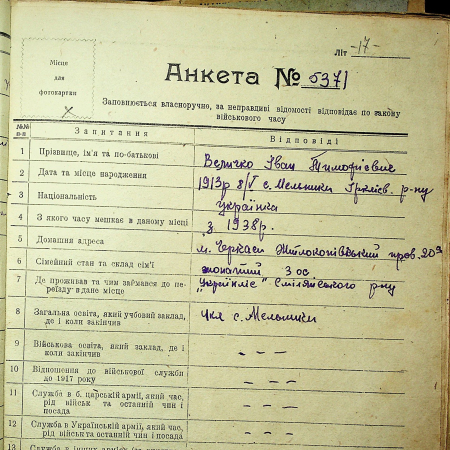 Місце
для
фотокартки
Літ -17-
Анкета № 5371
Заповнюється власноручно, за неправдиві відомості відповідає по закону
військового часу
№№ п-п Запитання Відповіді
1 Прізвище, ім'я та по-батькові Величко Іван Тимофієвич
2 Дата та місце народження 1913р 8/V с. Мельники р-ну
3 Національність українка
4 З якого часу мешкає в даному місці з 1938р.
5 Домашня адреса м. Черкаси пров. 20
6 Сімейний стан та склад сім'ї 3 ос
7 Де проживав та чим займався до пе-
реїзду в дане місце Смілянського р-ну
8 Загальна освіта, який учбовий заклад,
де і коли закінчив 4кл с. Мельники
9 Військова освіта, який заклад, де і
коли закінчив - - -
10 Відношення до військової служби
до 1917 року - - -
11 Служба в б. царській армії, який час,
рід військ та останній чин і
посада - - -
12 Служба в Українській армії, який час,
рід військ та останній чин і посада - - -
13 Служба в інших арміях